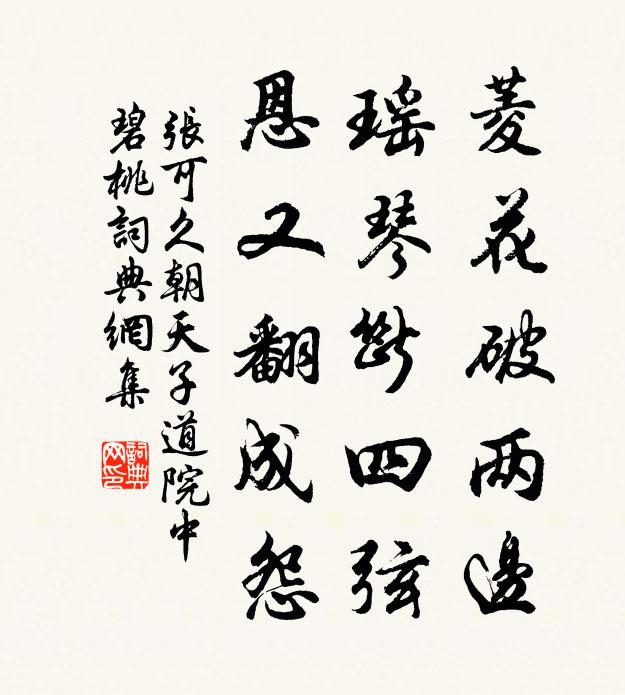 菱花破两邊
瑶琴断四弦
恩又翻成怨
張可久朝天子道院中
碧桃詞典網集
詞典网印